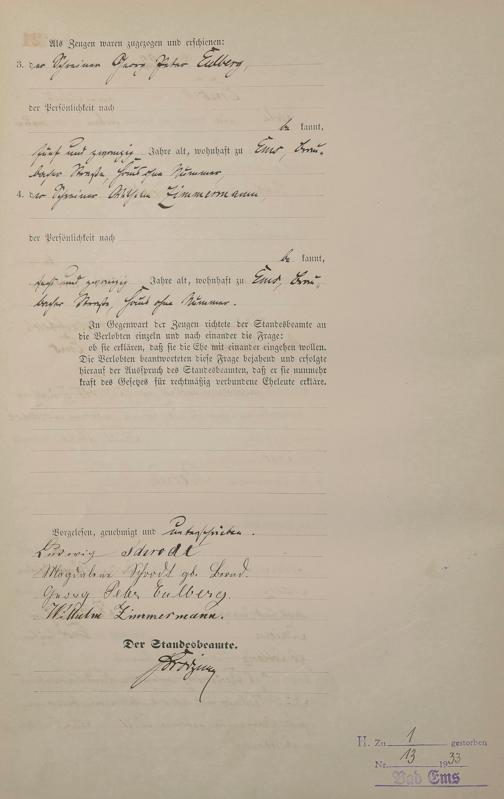 Als Zeugen waren zugezogen und erschienen:
3. der Schreiner Georg Peter Eulberg,
der Persönlichkeit nach
be kannt,
fünf und zwanzig Jahre alt, wohnhaft zu Ems, Brau-
bacher Straße, Haus ohne Nummer,
4. der Schreiner Wilhelm Zimmermann,
der Persönlichkeit nach
be kannt,
und zwanzig Jahre alt, wohnhaft zu Ems, Brau-
bacher Straße, Haus ohne Nummer.
In Gegenwart der Zeugen richtete der Standesbeamte an
die Verlobten einzeln und nach einander die Frage:
ob sie erklären, daß sie die Ehe mit einander eingehen wollen.
Die Verlobten beantworteten diese Frage bejahend und erfolgte
hierauf der Ausspruch des Standesbeamten, daß er sie nunmehr
kraft des Gesetzes für rechtmäßig verbundene Eheleute erkläre.
Vorgelesen, genehmigt und unterschrieben.
Ludwig Schrodt
Magdalene Schrodt gb.
Georg Peter Eulberg.
Wilhelm Zimmermann.
Der Standesbeamte.
H. Zu 1 gestorben
Nr. 13 1933
Bad Ems